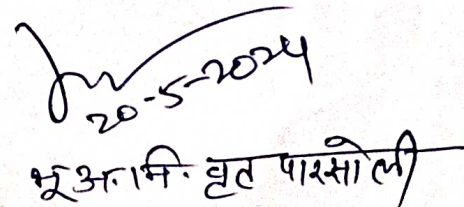 20-5-2024
भू.अ.नि. वृत पारसोली